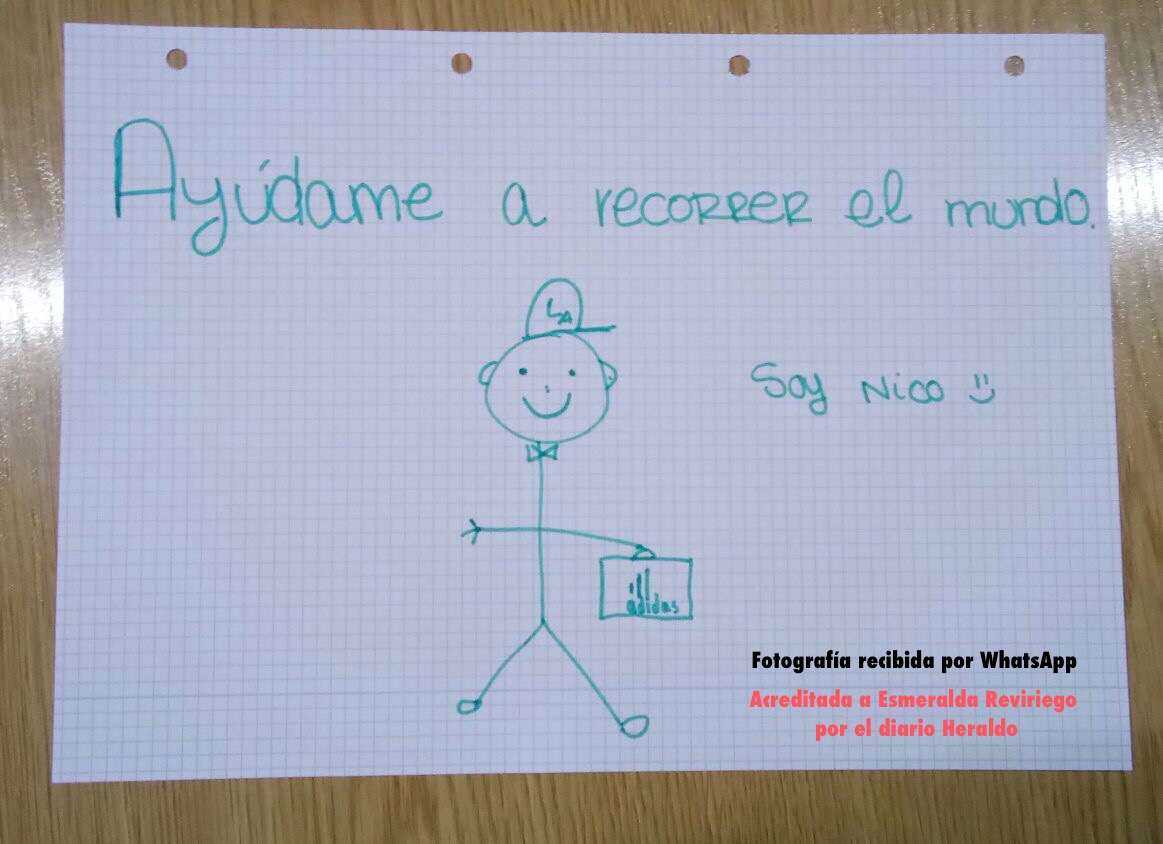 Ayúdame a recorrer el mundo.
LA
Soy Nico
adidas
Fotografía recibida por WhatsApp
Acreditada a Esmeralda Reviriego
por el diario Heraldo